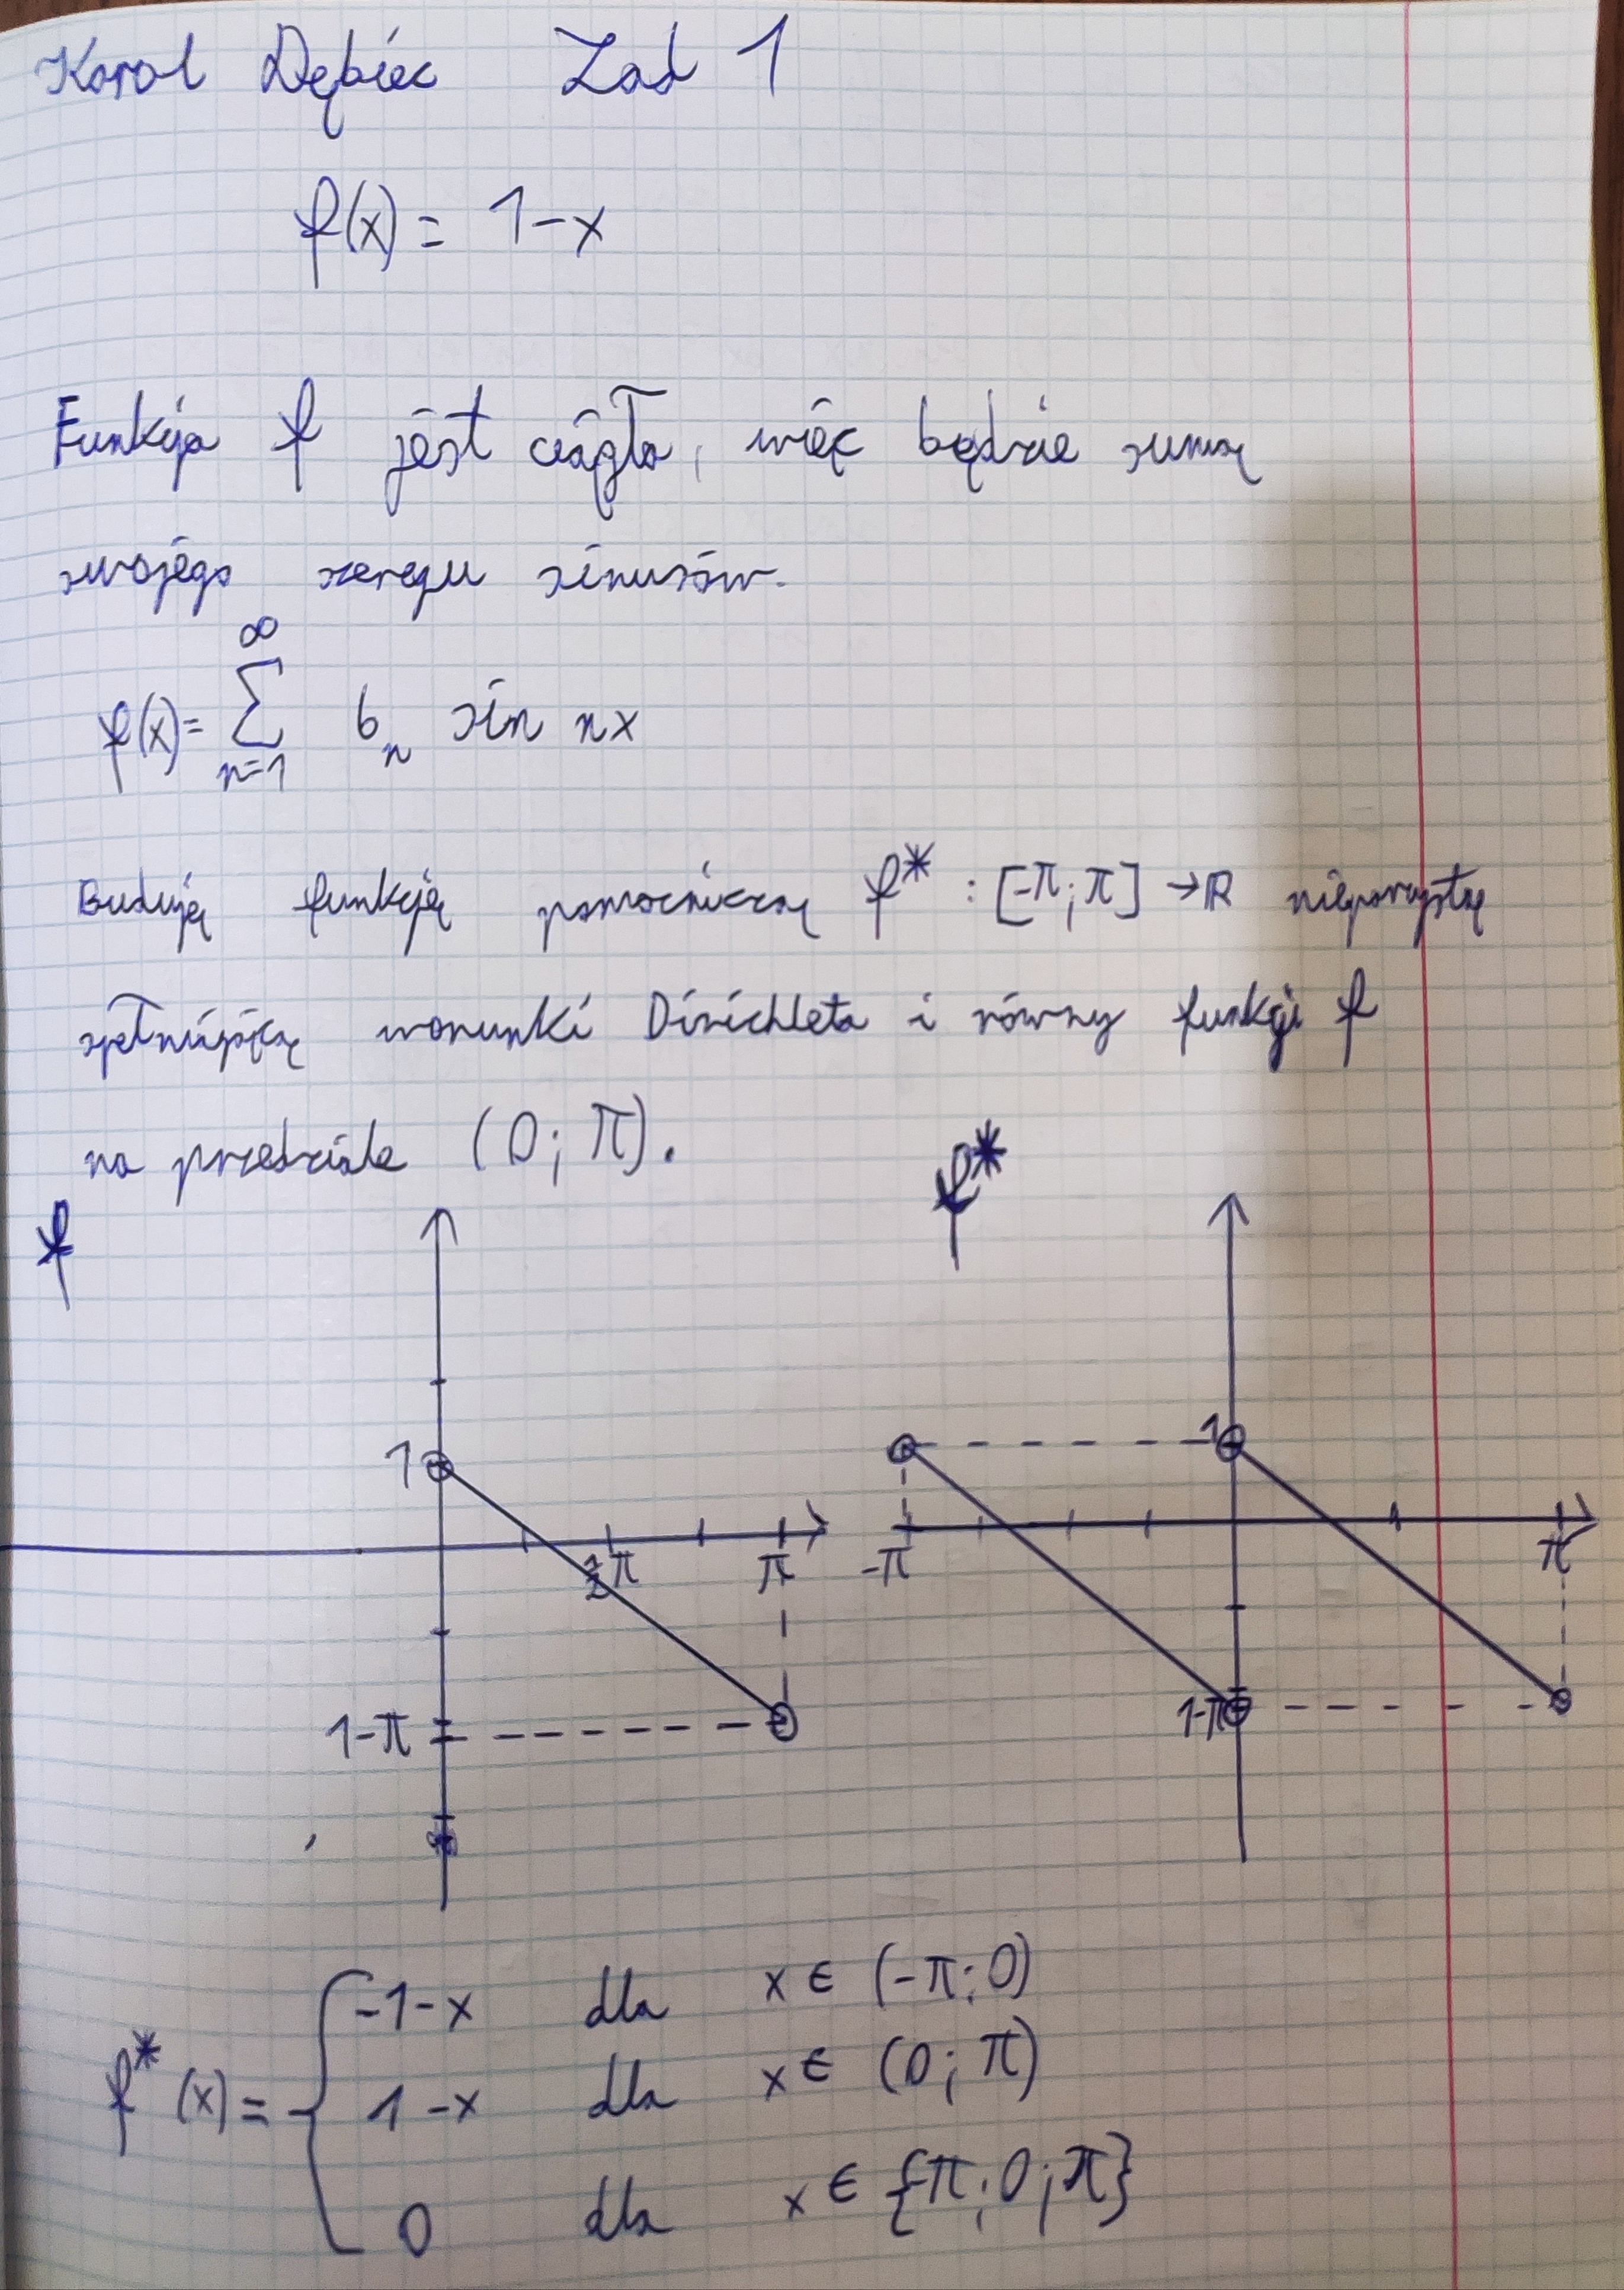 Karol Dębiec Zad 1
f(x) = 1-x
Funkcja f jest ciągła, więc będzie sumą
swojego szeregu sinusów.
∞
f(x) = Σ b_n sin nx
n=1
Buduję funkcję pomocniczą f* : [-π; π] → R nieparzystą
spełniającą warunki Dirichleta i równy funkcji f
na przedziale (0; π).
f f*
1 1
½π π -π π
1-π 1-π
-1-x dla x ∈ (-π; 0)
f*(x) = { 1-x dla x ∈ (0; π)
0 dla x ∈ {-π; 0; π}